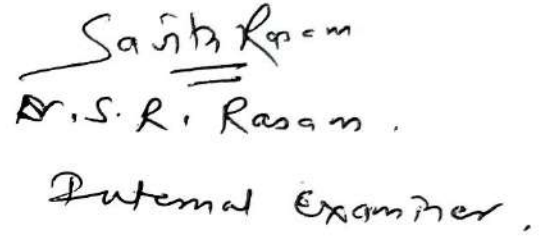 Rasam
Dr. S. R. Rasam.
Internal Examiner.